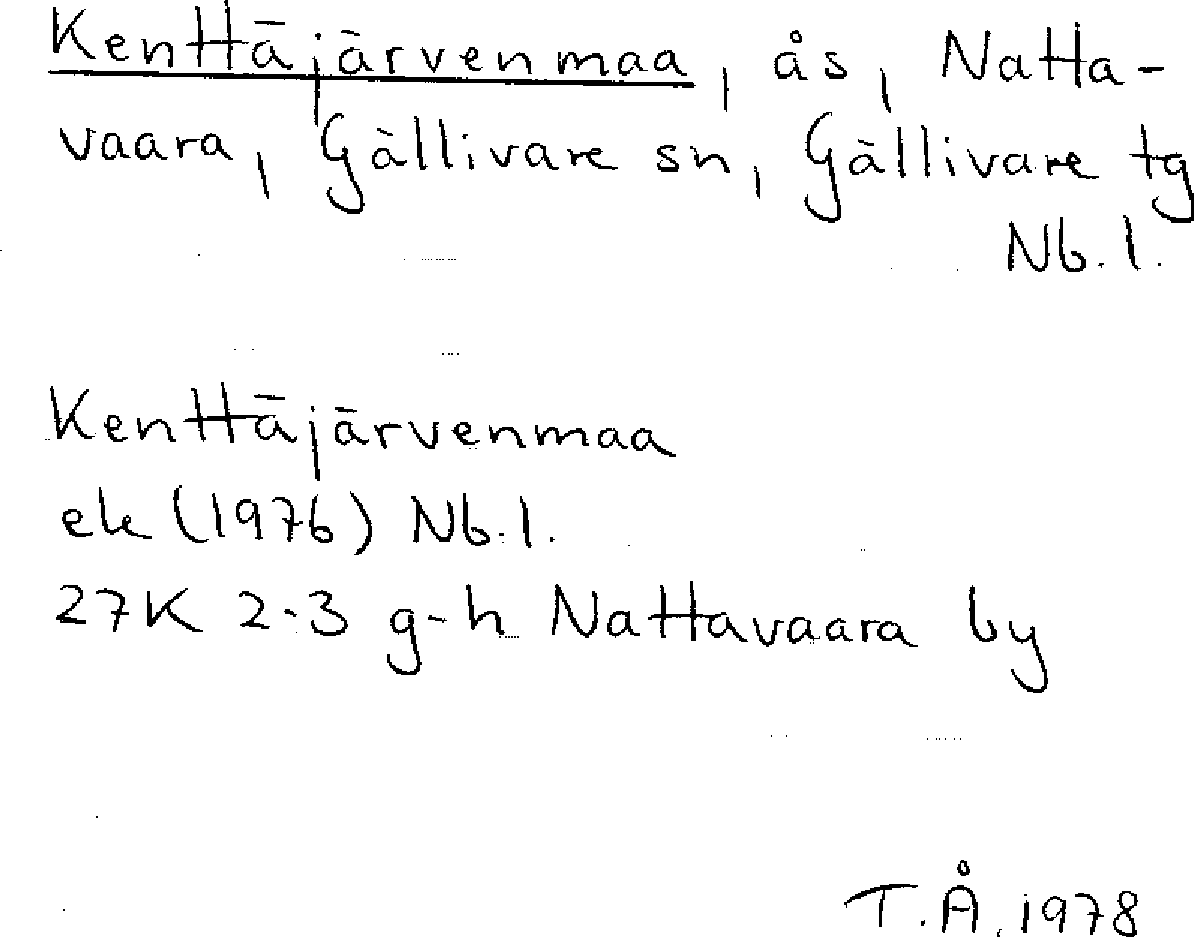 Kenttäjärvenmaa, ås, Natta-
vaara, Gällivare sn, Gällivare tg
Nb.l.
Kenttäjärvenmaa
ek (1976) Nb.l.
27K 2-3 g-h Nattavaara by
T.Å. 1978